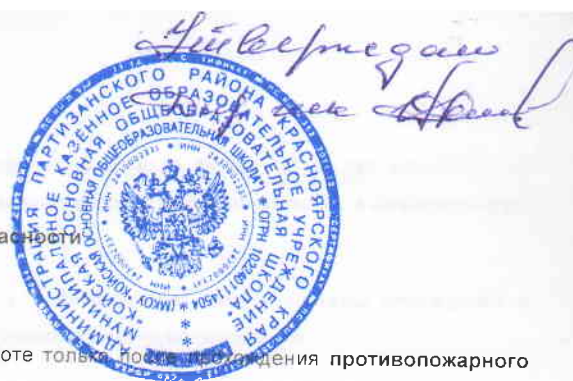 Утверждаю
АДМИНИСТРАЦИЯ ПАРТИЗАНСКОГО РАЙОНА КРАСНОЯРСКОГО КРАЯ
МУНИЦИПАЛЬНОЕ КАЗЁННОЕ ОБРАЗОВАТЕЛЬНОЕ УЧРЕЖДЕНИЕ
"КОЙСКАЯ ОСНОВНАЯ ОБЩЕОБРАЗОВАТЕЛЬНАЯ ШКОЛА"
(МКОУ "КОЙСКАЯ ОСНОВНАЯ ОБЩЕОБРАЗОВАТЕЛЬНАЯ ШКОЛА") * ОГРН 1022401114504 *
асности
оте только после прохождения противопожарного